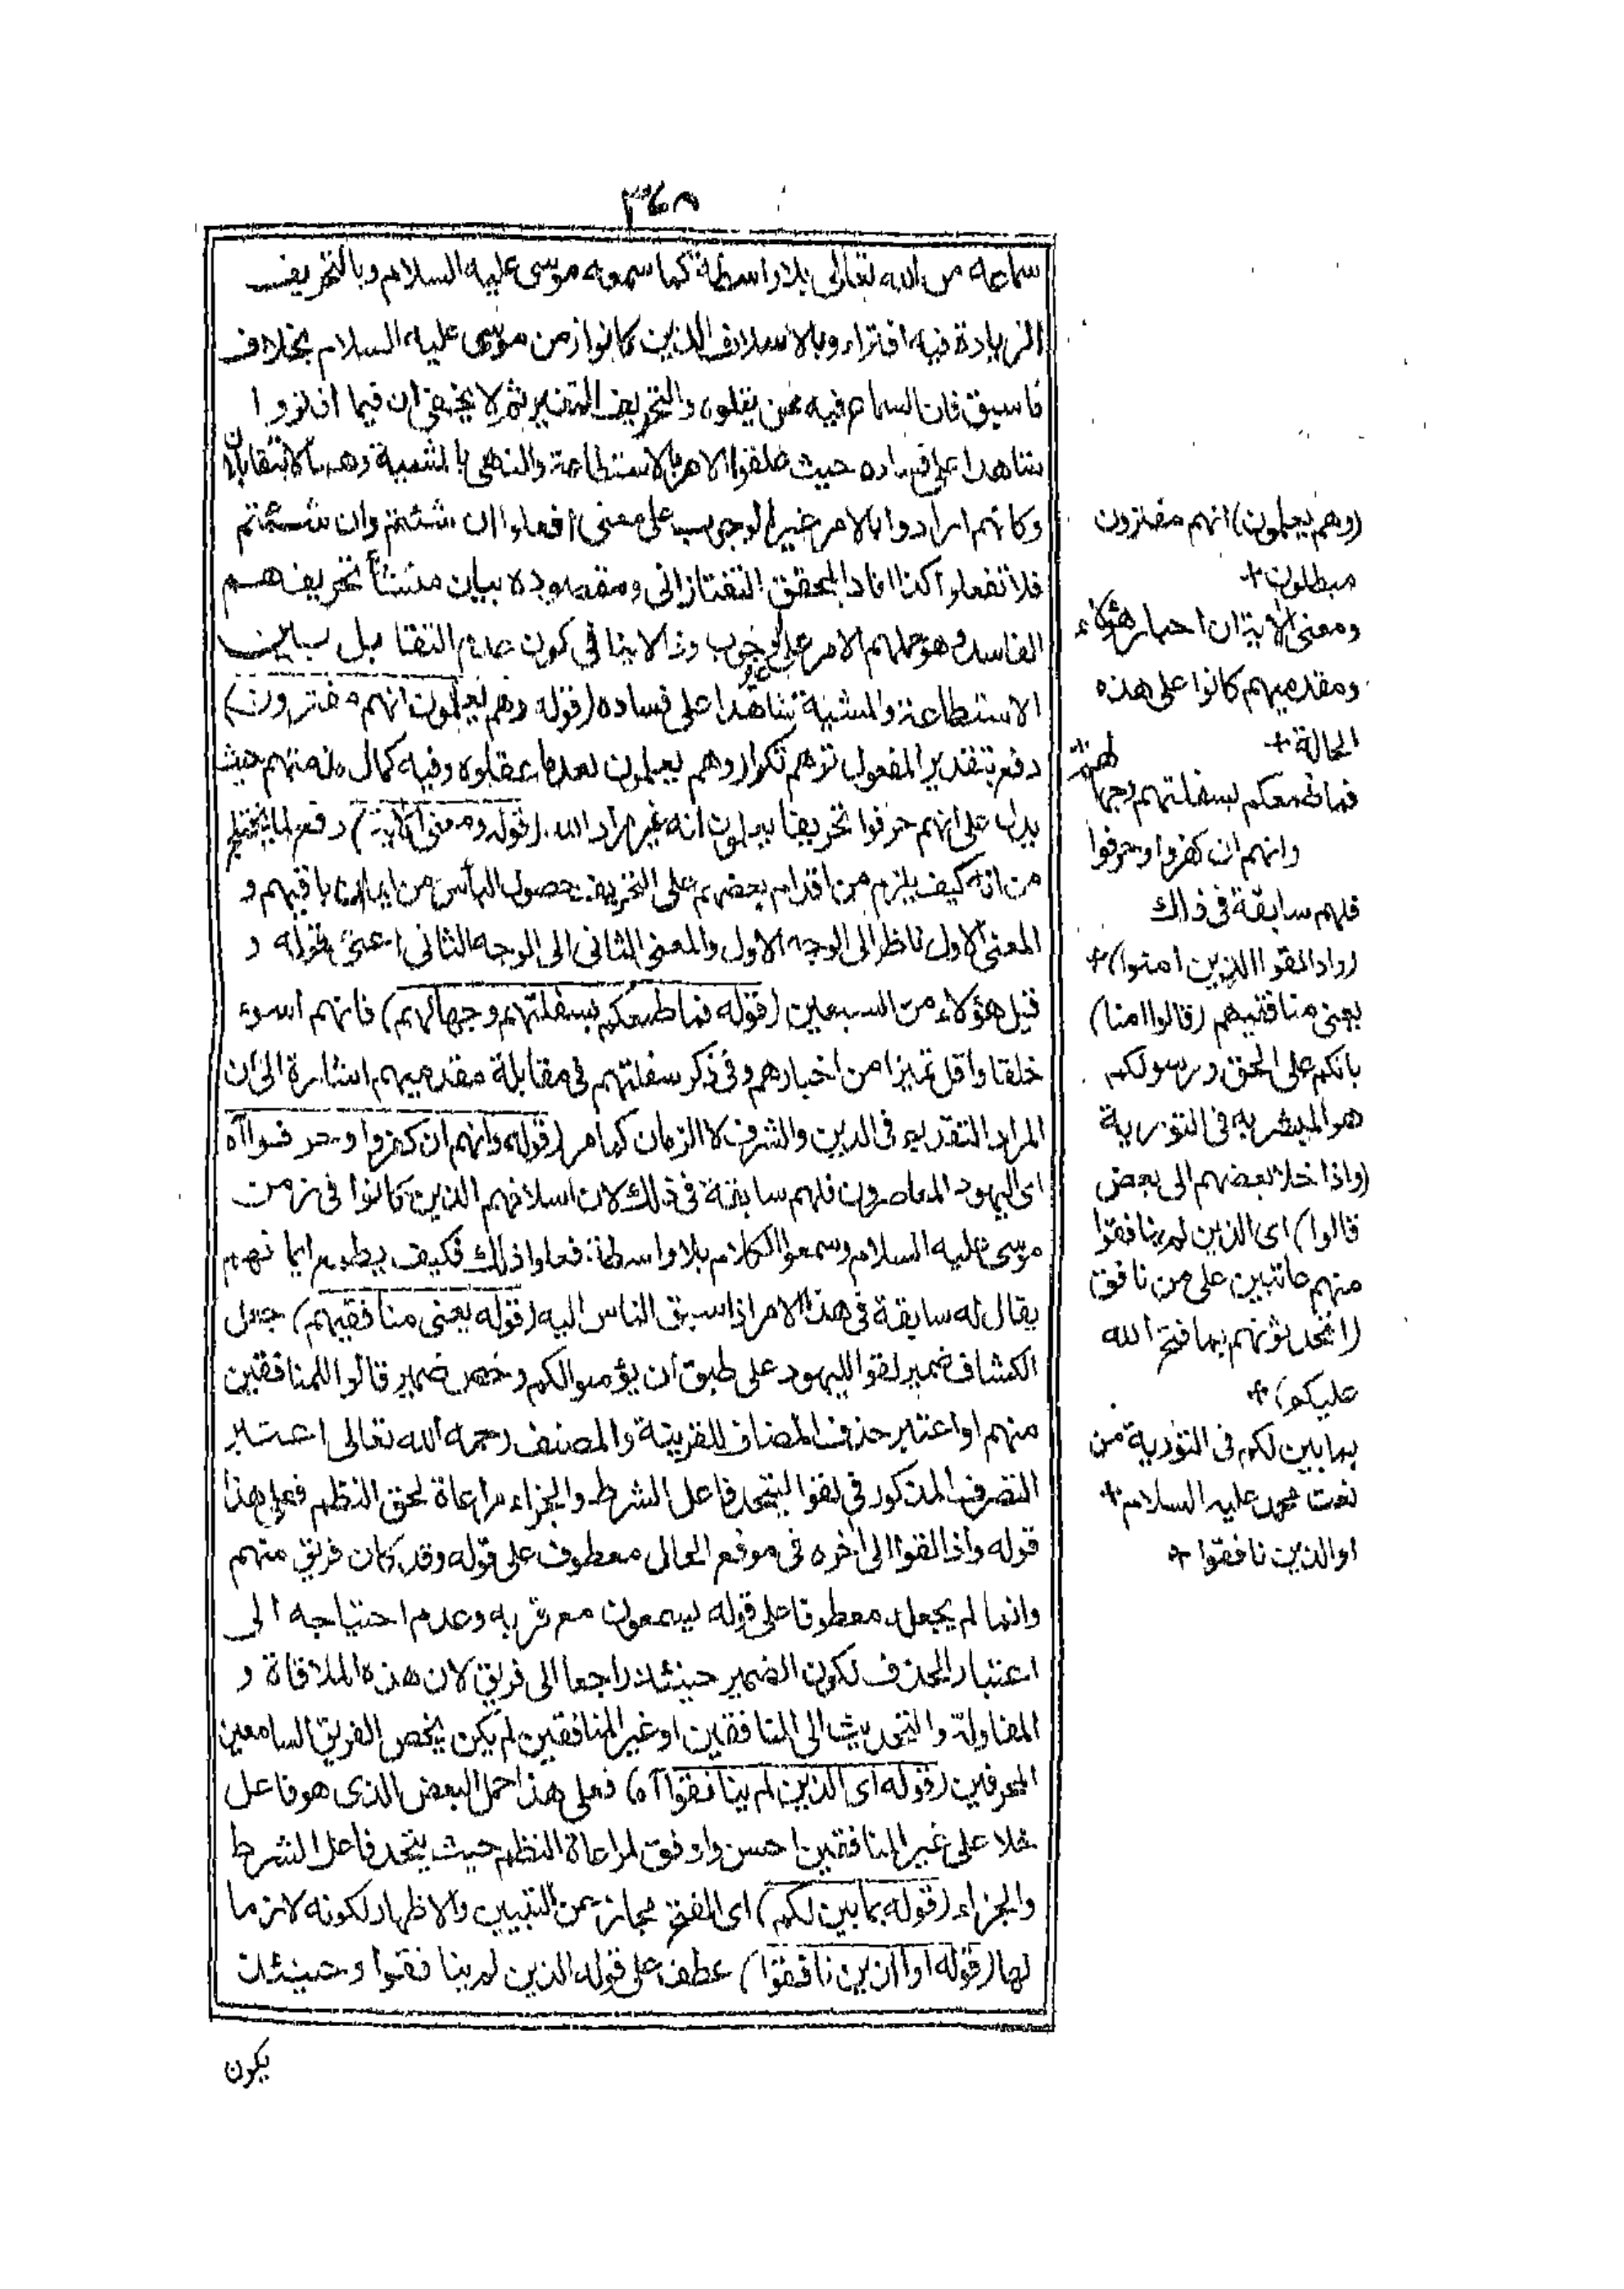 ٣٦٨
سماعه من الله تعالى بلا واسطة كما سمعه موسى عليه السلام وبالتحريف
الزيادة فيه افتراء وبالاسلاف الذين كانوا زمن موسى عليه السلام بخلاف
ما سبق فان السماع فيه ممن يتلوه والتحريف التغيير ثم لا يخفى ان فيما افتروا
شاهدا على فساده حيث علقوا الامر بالاستطاعة والنهى بالمشية وهما لا يتقابلان
وكانهم ارادوا بالامر غير الوجوب على معنى افعلوا ان شئتم وان شئتم
فلا تفعلوا كذا افاد المحقق التفتازانى ومقصوده بيان منشأ تحريفهم
الفاسد وهو حملهم الامر على الوجوب وذا لا ينافى كون عدم التقابل بين
الاستطاعة والمشية شاهدا على فساده (قوله وهم يعلمون انهم مفترون)
دفع بتقدير المفعول توهم تكرار وهم يعلمون بعد ما عقلوه وفيه كمال مذمتهم حيث
يدل على انهم حرفوا تحريفا يعلمون انه غير مراد الله (قوله ومعنى الآية) دفع لما يختلج
من انه كيف يلزم من اقدام بعضهم على التحريف حصول اليأس من ايمان باقيهم و
المعنى الاول ناظر الى الوجه الاول والمعنى الثانى الى الوجه الثانى اعنى بقوله و
قيل هؤلاء من السبعين (قوله فما طمعكم بسفلتهم وجهالهم) فانهم اسوء
خلقا واقل تميزا من احبارهم وفى ذكر سفلتهم فى مقابلة مقدميهم اشارة الى ان
المراد التقديم فى الدين والشرف لا الزمان كما مر (قوله وانهم ان كفروا وحرفوا آه
اى اليهود المعاصرون فلهم سابقة فى ذلك لان اسلافهم الذين كانوا فى زمن
موسى عليه السلام وسمعوا الكلام بلا واسطة فعلوا ذلك فكيف يطمع ايمانهم
يقال له سابقة فى هذا الامر اذا سبق الناس اليه (قوله يعنى منافقيهم) جعل
الكشاف ضمير لقوا لليهود على طبق ان يؤمنوا لكم وخص ضمير قالوا للمنافقين
منهم او اعتبر حذف المضاف للقرينة والمصنف رحمه الله تعالى اعتبر
التصرف المذكور فى لقوا ليتحد فاعل الشرط والجزاء مراعاة لحق النظم فعلى هذا
قوله واذا لقوا الى آخره فى موقع الحال معطوف على قوله وقد كان فريق منهم
وانما لم يجعل معطوفا على قوله يسمعون مع قربه وعدم احتياجه الى
اعتبار الحذف لكون الضمير حينئذ راجعا الى فريق لان هذه الملاقاة و
المقاولة والتحديث الى المنافقين او غير المنافقين لم يكن يخص الفريق السامعين
المحرفين (قوله اى الذين لم ينافقوا آه) فعلى هذا حمل البعض الذى هو فاعل
خلا على غير المنافقين احسن واوفق لمراعاة النظم حيث يتحد فاعل الشرط
والجزاء (قوله بما بين لكم) اى الفتح مجاز عن التبيين والاظهار لكونه لازما
لها (قوله او الذين نافقوا) عطف على قوله الذين لم ينافقوا وحينئذ
يكون
(وهم يعلمون) انهم مفترون
مبطلون +
ومعنى الآية ان احبار هؤلاء
ومقدميهم كانوا على هذه
الحالة +
فما طمعكم بسفلتهم وجهالهم
وانهم ان كفروا وحرفوا
فلهم سابقة فى ذلك
(واذا لقوا الذين امنوا) +
يعنى منافقيهم (قالوا امنا)
بانكم على الحق ورسولكم
هو المبشر به فى التورية
(واذا خلا بعضهم الى بعض
قالوا) اى الذين لم ينافقوا
منهم عاتبين على من نافق
(اتحدثونهم بما فتح الله
عليكم) +
بما بين لكم فى التورية من
نعت محمد عليه السلام +
او الذين نافقوا +